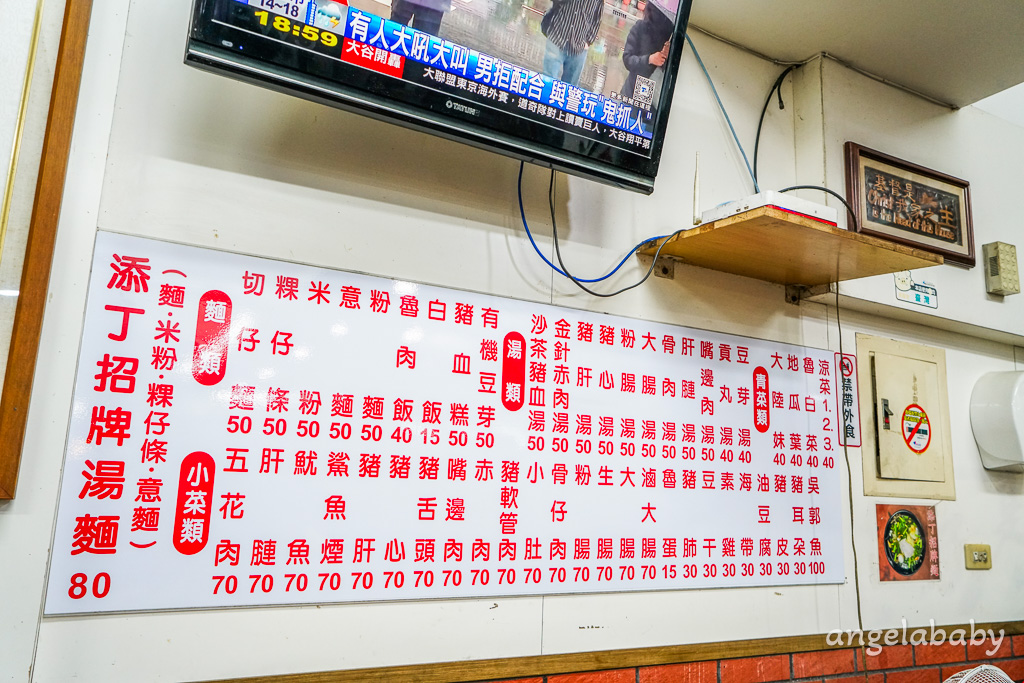 14~18
18:59
大谷開轟
有人大吼大叫 男拒配合 與警玩"鬼抓人"
大聯盟東京海外賽，道奇隊對上讀賣巨人，大谷翔平第
TATUNG
基督是我家之主
添丁招牌湯麵 80
(麵·米粉·粿仔條·意麵)
麵類
切仔麵 50
粿仔條 50
米粉 50
意麵 50
粉麵 50
魯肉飯 40
白飯 15
豬血糕 50
有機豆芽 50
湯類
沙茶豬血湯 50
金針赤肉湯 50
豬肝湯 50
豬心湯 50
粉腸湯 50
大腸湯 50
骨肉湯 50
肝腱湯 50
嘴邊肉湯 50
貢丸湯 40
豆芽湯 40
青菜類
大陸妹 40
地瓜葉 40
魯白菜 40
涼菜1.2.3. 40
小菜類
五花肉 70
肝腱 70
魷魚 70
鯊魚煙 70
豬肝 70
豬心 70
豬舌頭 70
嘴邊肉 70
赤肉 70
豬軟管肉 70
小肚 70
骨仔肉 70
粉腸 70
生腸 70
大腸 70
滷大腸 70
魯蛋 15
豬肺 30
豆干 30
素雞 30
海帶 30
油豆腐 30
豬皮 30
豬耳朵 30
吳郭魚 100
禁帶外食
angelababy